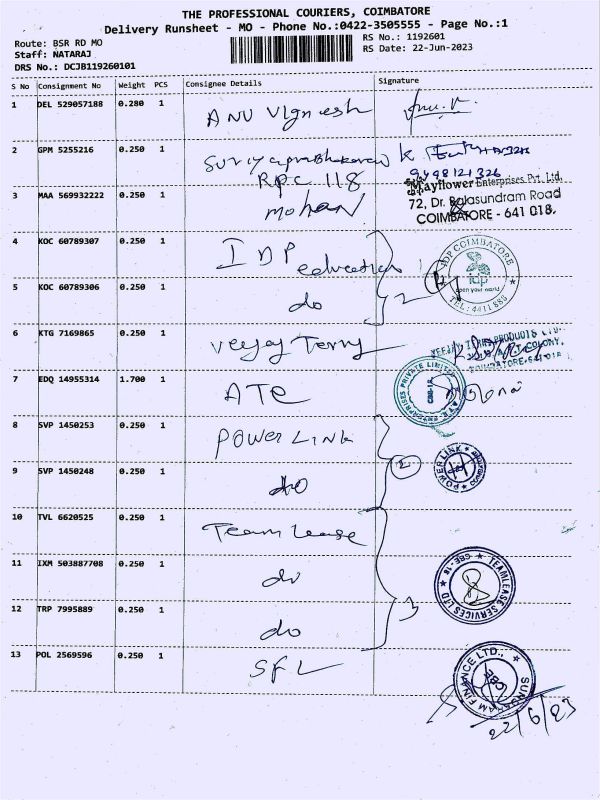 THE PROFESSIONAL COURIERS, COIMBATORE
Delivery Runsheet - MO - Phone No.:0422-3505555 - Page No.:1
Route: BSR RD MO
Staff: NATARAJ
DRS No.: DCJB119260101
RS No.: 1192601
RS Date: 22-Jun-2023
S No Consignment No Weight PCS Consignee Details Signature
1 DEL 529057188 0.280 1 ANU Vignesh
2 GPM 5255216 0.250 1 Suriyaprabhakaran K
RPC 118 9498121326
3 MAA 569932222 0.250 1 Mohan
Mayflower Enterprises Pvt. Ltd.
72, Dr. Balasundram Road
COIMBATORE - 641 018.
4 KOC 60789307 0.250 1 IDP education
IDP COIMBATORE
idp
open your world
TEL: 4411555
5 KOC 60789306 0.250 1 do 2
6 KTG 7169865 0.250 1 Veejay Terry
VEEJAY TERRY PRODUCTS LTD.
COIMBATORE-641018
7 EDQ 14955314 1.700 1 ATE
A.T.E. ENTERPRISES PRIVATE LIMITED
CBE-18
8 SVP 1450253 0.250 1 POWER LINK
2
POWER LINK
9 SVP 1450248 0.250 1 do
10 TVL 6620525 0.250 1 Team Lease
11 IXM 503887708 0.250 1 do
TEAMLEASE SERVICES LTD
CBE-18
12 TRP 7995889 0.250 1 do 3
13 POL 2569596 0.250 1 SFL
SUNDARAM FINANCE LTD.,
22/6/23